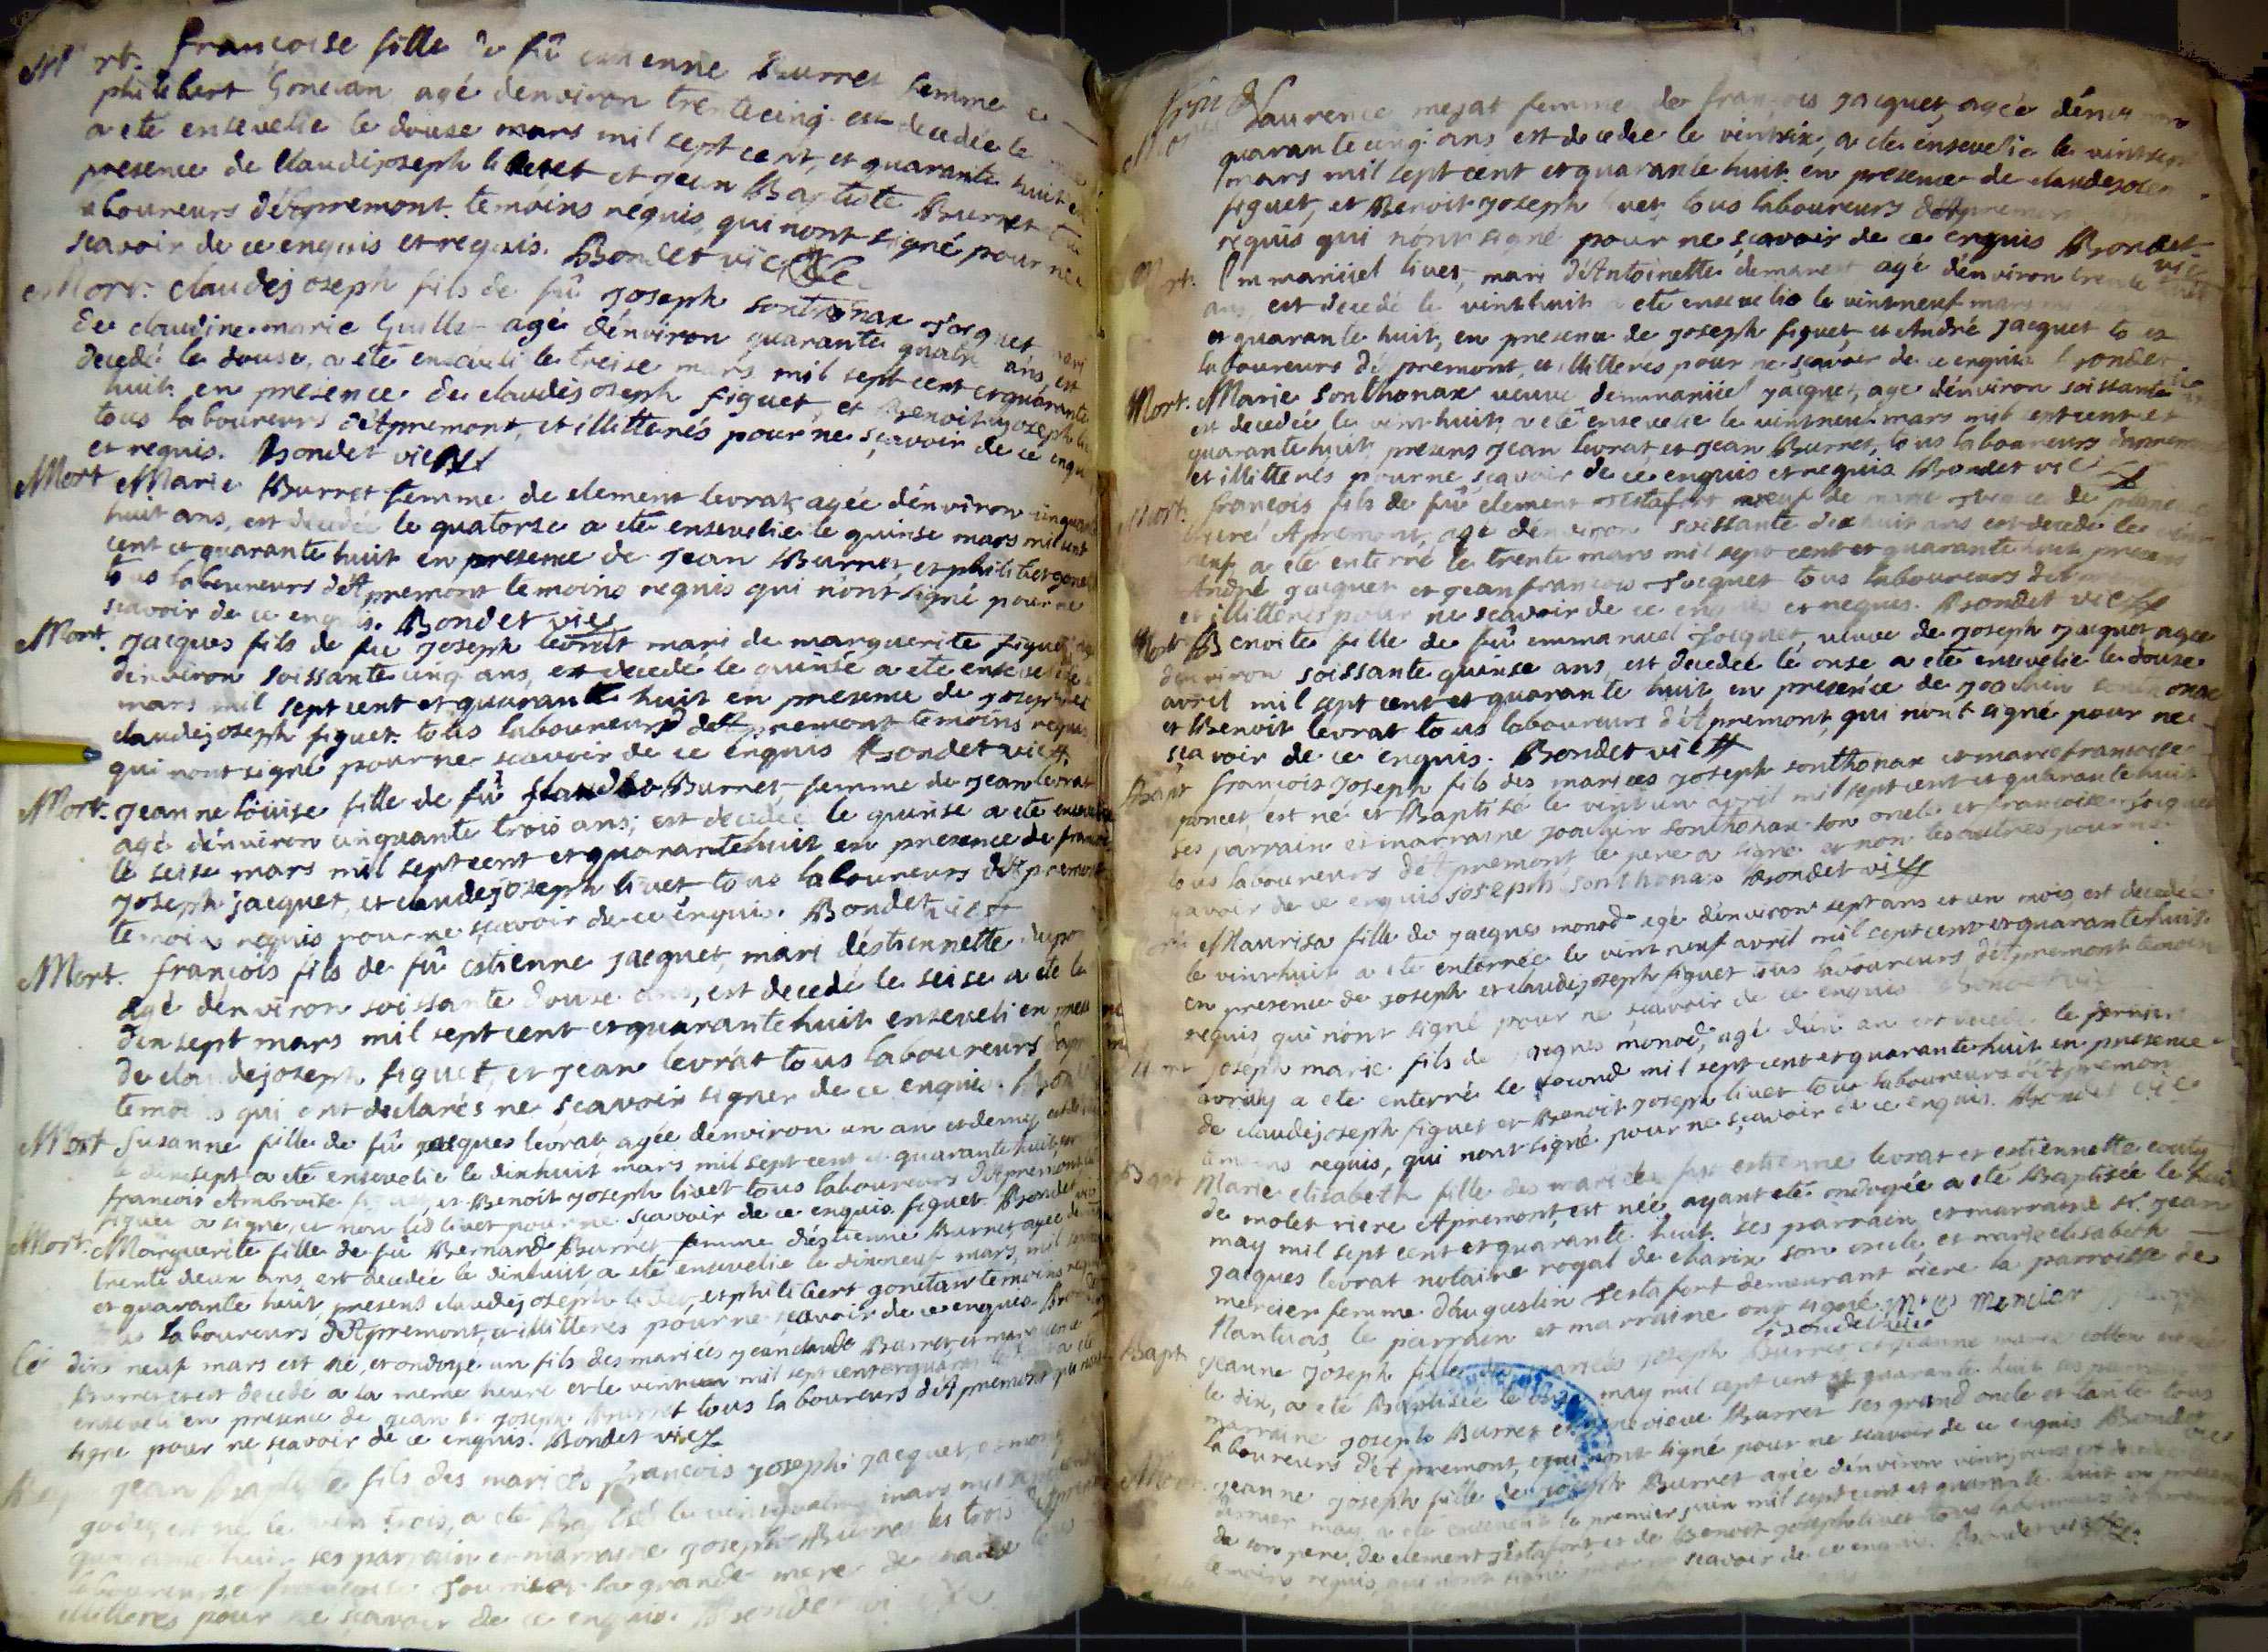 Mort. françoise fille de fû estienne Burret femme
philibert Gonetan agé denviron trentecinq est decedée le
a eté ensevelie le douse mars mil sept cent, et quarante huit en
presence de Claudejoseph livet et jean Baptiste Burret
laboureurs d'Apremont. temoins requis, qui nont signé pour ne
scavoir de ce enquis et requis. Bondet vic
Mort. claudejoseph fils de fû joseph sontonax jacquet mari
de claudine marie Guillet agé dénviron quarante quatre ans, est
decedé le douse, a eté enseveli le treise mars mil sept cent et quarante
huit. en presence de claudejoseph figuet, et Benoit joseph
tous laboureurs d'Apremont, et illitterés pour ne sçavoir de ce enquis
et requis. Bondet vic
Mort Marie Burret femme de clement levrat agée dénviron cinquante
huit ans, est decedée le quatorse a eté ensevelie le quinse mars mil sept
cent et quarante huit en presence de jean Burret, et philibert gone
tous laboureurs d'Apremont temoins requis qui n'ont signé pour ne
scavoir de ce enquis. Bondet vic
Mort. jacques fils de fû joseph levrat mari de marguerite figuet
dénviron soissante cinq ans, est decedé le quinse a eté enseveli
mars mil sept cent et quarante huit en presence de joseph
claudejoseph figuet. tous laboureurs d'Apremont temoins requis
qui nont signé pour ne scavoir de ce enquis Bondet vic
Mort. jeanne loüise fille de fû Burret femme de jean levrat
agé dénviron cinquante trois ans, est decedée le quinse a eté ensevelie
le seise mars mil sept cent et quarante huit en presence de françois
joseph jacquet, et claudejoseph livet tous laboureurs d'Apremont
temoins requis pour ne sçavoir de ce enquis. Bondet vic
Mort. françois fils de fû estienne jacquet, mari déstiennette
agé dénviron soissante douse ans, est decedé le seise a eté le
dix sept mars mil sept cent et quarante huit enseveli en
de claudejoseph figuet, et jean levrat tous laboureurs
temoins qui ont declarés ne sçavoir signer de ce enquis.
Mort Susanne fille de fû jacques levrat, agée denviron un an et demy,
le dixsept a eté ensevelie le dixhuit mars mil sept cent et quarante huit,
francois Ambroise figuet, et Benoit joseph livet tous laboureurs d'Apremont,
figuet a signé, et non led livet pour ne sçavoir de ce enquis. figuet Bondet
Mort. Marguerite fille de fû Bernard Burret femme déstienne Burret, agée
trente deux ans, est decedée le dixhuit a eté ensevelie le dixneuf mars, mil
et quarante huit, presens claudejoseph livet, et philibert gonetan temoins
tous laboureurs d'Apremont, et illitterés pour ne sçavoir de ce enquis.
dix neuf mars est né, et ondoyé un fils des mariés jean claude Burret, et
Burret et est decedé a la meme heure et le vint mil sept cent et quarante a eté
enseveli en presence de jean et joseph Burret tous laboureurs d'Apremont
signé pour ne sçavoir de ce enquis. Bondet vic
Bapt jean Baptiste fils des mariés françois joseph jacquet,
godet, est né le vint trois, a eté Baptisé le vint quatre mars mil sept cent
quarante huit. ses parrain et marraine joseph Burret
laboureurs, la grande mere
illitterés pour ne sçavoir de ce enquis. Bondet vic
Mort Laurence mejat femme de françois jacquet, agée dénviron
quarante cinq ans est decedée le vintsix, a eté ensevelie le vintsept
mars mil sept cent et quarante huit. en presence de claudejoseph
figuet, et Benoit joseph livet, tous laboureurs d'Apremont
requis qui nónt signé pour ne sçavoir de ce enquis Bondet
vic
Mort. Emmanüel livet, mari d'Antoinette demarest agé dénviron trente huit
ans, est decedé le vinthuit a eté enseveli le vintneuf mars
et quarante huit, en presence de joseph figuet, et André jacquet tous
laboureurs d'Apremont, et illitterés pour ne sçavoir de ce enquis Bondet
Mort. Marie Sonthonax veuve demmanüel jacquet, agé dénviron soissante
est decedée le vinthuit, a eté ensevelie le vintneuf mars mil sept cent et
quarante huit. presens jean levrat, et jean Burret, tous laboureurs d'Apremont
et illitterés pour ne sçavoir de ce enquis et requis Bondet vic
Mort. françois fils de fû clement jestafort de marie
riere Apremont, agé dénviron soissante dix huit ans est decedé le vint
neuf a eté enterré le trente mars mil sept cent et quarante huit presens
André jacquet et jean françois jacquet tous laboureurs
et illitterés pour ne sçavoir de ce enquis et requis. Bondet vic
Mort Benoite fille de fû emmanuel jacquet, veuve de joseph jacquet agée
dénviron soissante quinse ans, est decedée le onse a eté ensevelie le douse
avril mil sept cent et quarante huit en presence de joachin sonthonax
et Benoit levrat tous laboureurs d'Apremont, qui n'ont signé pour ne
sçavoir de ce enquis. Bondet vic
Bapt françois joseph fils des mariés joseph sonthonax et marie françoise
poncet, est né et Baptisé le vint un avril mil sept cent et quarante huit
ses parrain et marraine joachin sonthonax son oncle et françoise jacquet
tous laboureurs d'Apremont, le pere a signé et non les autres pour ne
sçavoir de ce enquis joseph sonthonax Bondet vic
Maurisa fille de jacques monod agé dénviron sept ans et un mois, est decedée
le vinthuit a eté enterrée le vint neuf avril mil sept cent et quarante huit.
en presence de joseph et claudejoseph figuet tous laboureurs d'Apremont temoins
requis qui nónt signé pour ne sçavoir de ce enquis Bondet vic
Mort joseph marie fils de jacques monod, agé dún an est decedé le
a eté enterré le second mil sept cent et quarante huit en presence
de claudejoseph figuet et Benoit joseph livet tous laboureurs d'Apremont
temoins requis, qui nont signé pour ne sçavoir de ce enquis. Bondet vic
Bapt Marie elisabeth fille des mariés estienne levrat et estiennette
de molet riere Apremont, est née, ayant eté ondoyée a eté Baptisée le huit
may mil sept cent et quarante huit. ses parrain et marraine Sr. jean
jacques levrat notaire royal de charix son oncle, et marie elisabeth
mercier femme d'Augustin jestafort demeurant riere la parroisse de
Nantuas, le parrain et marraine ont signé. M E Mercier
Bondet vic
Bapt jeanne joseph fille des mariés joseph Burret, et jeanne marie
le dix, a eté Baptisée le onze may mil sept cent et quarante huit ses parrain
marraine joseph Burret et genevieve Burret ses grand oncle et tante tous
laboureurs d'Apremont, qui nont signé pour ne sçavoir de ce enquis Bondet
Mort jeanne joseph fille de joseph Burret agée dénviron vint jours est decedée
dernier may, a eté ensevelie le premier juin mil sept cent et quarante huit en presence
de son pere, de clement jestafort, et de Benoit joseph livet tous laboureurs
temoins requis, qui nont signé pour ne sçavoir de ce enquis. Bondet vic